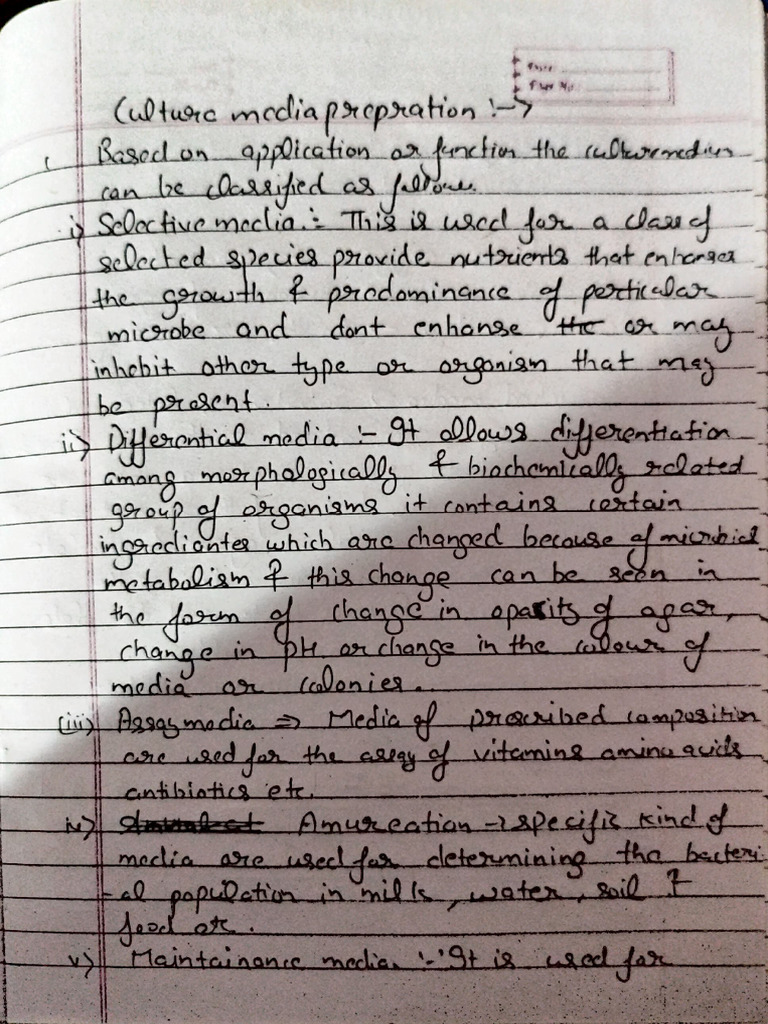 Culture media prepration :→
Based on application or function the culture medium
can be classified as follows.
i) Selective media :- This is used for a class of
selected species provide nutrients that enhanses
the growth & predominance of perticular
microbe and dont enhanse the or may
inhebit other type or organism that may
be present.
ii) Differential media :- It allows differentiation
among morphologically & biochemically related
group of organisms it contains certain
ingrediantes which are changed because of microbial
metabolism & this change can be seen in
the form of change in oparity of agar,
change in pH or change in the colour of
media or colonies..
(iii) Assay media ⇒ Media of prescribed composition
are used for the assay of vitamins amino acids
antibiotics etc.
iv) Amureation → specific kind of
media are used for determining the bacteri
-al population in milk, water, soil &
food etc.
v) Maintainance media :- It is used for